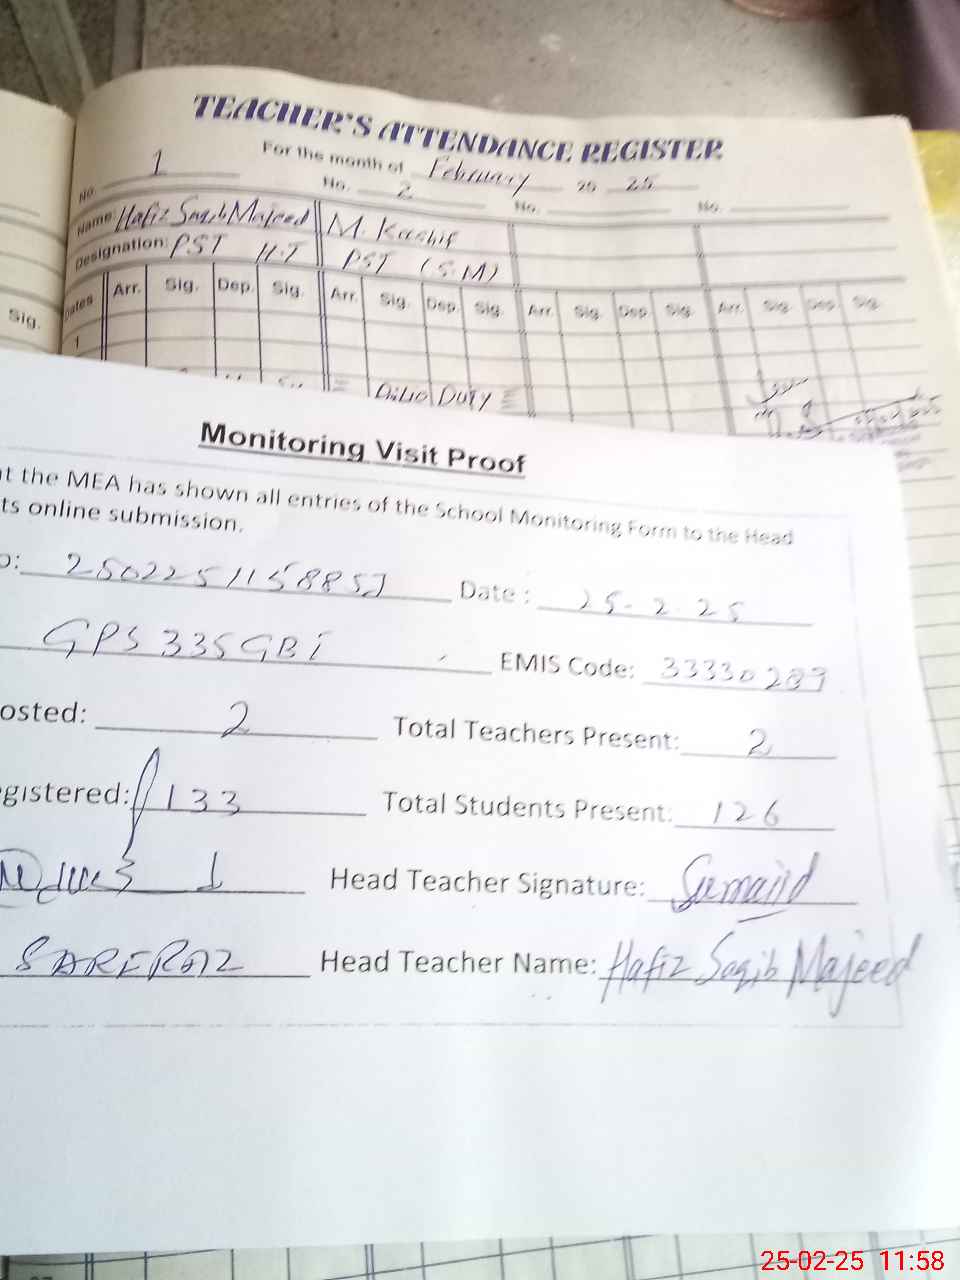 TEACHER'S ATTENDANCE REGISTER
For the month of February 20 25
No. 1 No. 2 No. No.
Name: Hafiz Saqib Majeed M. Kashif
Designation: PST H.T PST (S.M)
Dates Arr. Sig. Dep. Sig. Arr. Sig. Dep. Sig. Arr. Sig. Dep. Sig. Arr. Sig. Dep. Sig.
Sig.
1
Duty
Monitoring Visit Proof
at the MEA has shown all entries of the School Monitoring Form to the Head
ts online submission.
o: Date : 25-2-25
GPS 335GBi EMIS Code: 33330289
osted: 2 Total Teachers Present: 2
egistered: 133 Total Students Present: 126
1 Head Teacher Signature:
Head Teacher Name: Hafiz Saqib Majeed
25-02-25 11:58